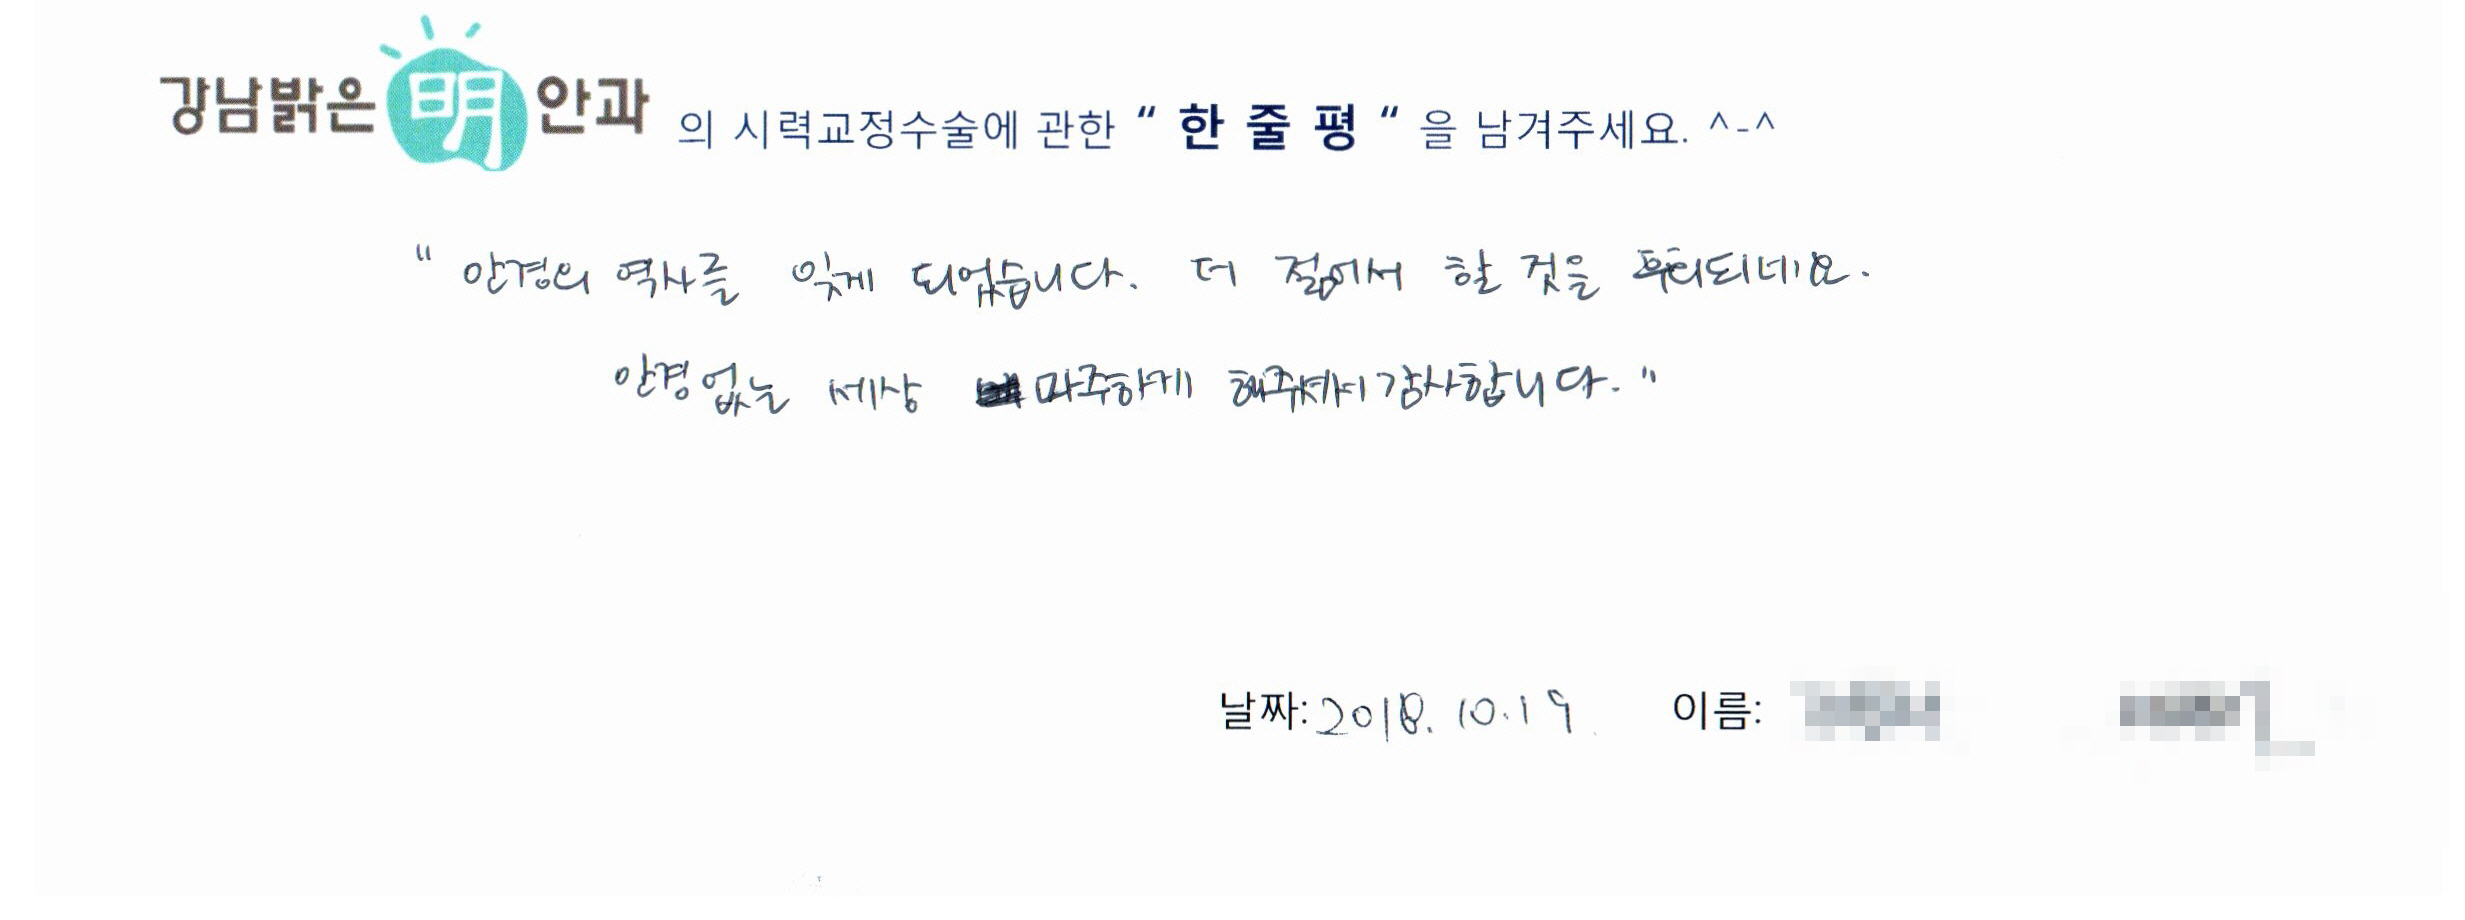 강남밝은明안과 의 시력교정수술에 관한 “ 한 줄 평 “ 을 남겨주세요. ^-^
“ 안경의 역사를 잊게 되었습니다. 더 젊어서 할 것을 후회되네요.
안경없는 세상 마주하게 해주셔서 감사합니다. ”
날짜: 2018. 10. 19 이름: